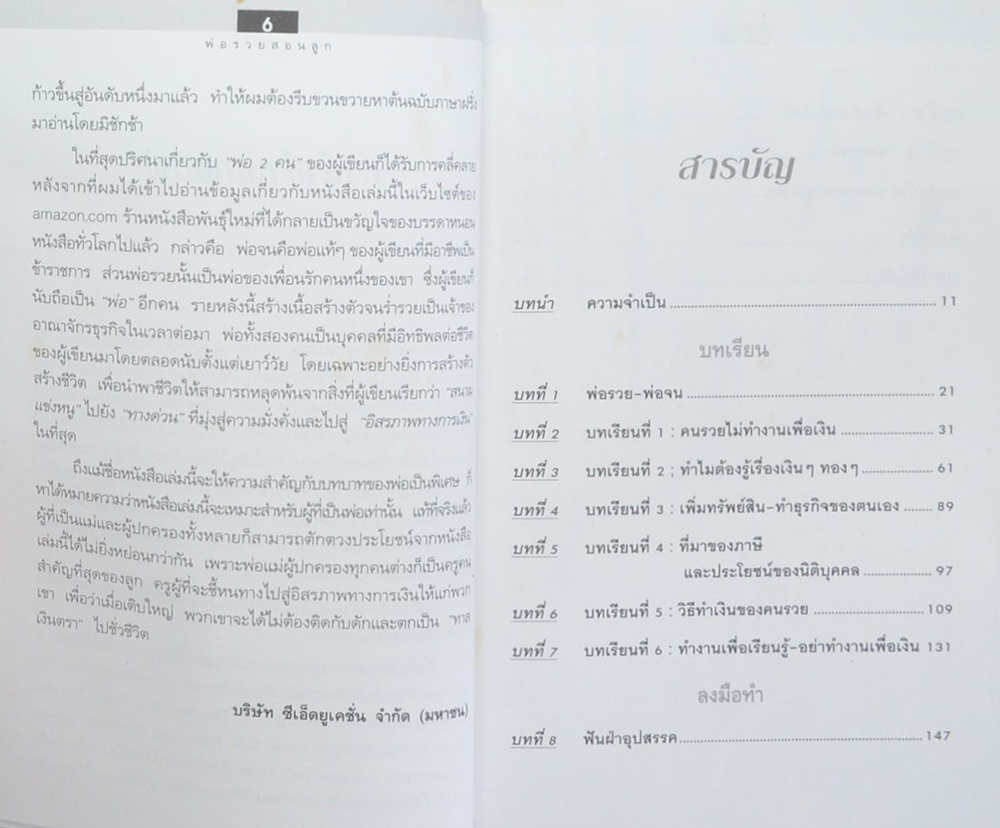 6
พ่อรวยสอนลูก
ก้าวขึ้นสู่อันดับหนึ่งมาแล้ว ทำให้ผมต้องรีบขวนขวายหาต้นฉบับภาษาฝรั่ง
มาอ่านโดยมิชักช้า
ในที่สุดปริศนาเกี่ยวกับ "พ่อ 2 คน" ของผู้เขียนก็ได้รับการคลี่คลาย
หลังจากที่ผมได้เข้าไปอ่านข้อมูลเกี่ยวกับหนังสือเล่มนี้ในเว็บไซต์ของ
amazon.com ร้านหนังสือพันธุ์ใหม่ที่ได้กลายเป็นขวัญใจของบรรดาหนอน
หนังสือทั่วโลกไปแล้ว กล่าวคือ พ่อจนคือพ่อแท้ๆ ของผู้เขียนที่มีอาชีพเป็น
ข้าราชการ ส่วนพ่อรวยนั้นเป็นพ่อของเพื่อนรักคนหนึ่งของเขา ซึ่งผู้เขียนก็
นับถือเป็น "พ่อ" อีกคน รายหลังนี้สร้างเนื้อสร้างตัวจนร่ำรวยเป็นเจ้าของ
อาณาจักรธุรกิจในเวลาต่อมา พ่อทั้งสองคนเป็นบุคคลที่มีอิทธิพลต่อชีวิต
ของผู้เขียนมาโดยตลอดนับตั้งแต่เยาว์วัย โดยเฉพาะอย่างยิ่งการสร้างตัว
สร้างชีวิต เพื่อนำพาชีวิตให้สามารถหลุดพ้นจากสิ่งที่ผู้เขียนเรียกว่า "สนาม
แข่งหนู" ไปยัง "ทางด่วน" ที่มุ่งสู่ความมั่งคั่งและไปสู่ "อิสรภาพทางการเงิน"
ในที่สุด
ถึงแม้ชื่อหนังสือเล่มนี้จะให้ความสำคัญกับบทบาทของพ่อเป็นพิเศษ ก็
หาได้หมายความว่าหนังสือเล่มนี้จะเหมาะสำหรับผู้ที่เป็นพ่อเท่านั้น แท้ที่จริงแล้ว
ผู้ที่เป็นแม่และผู้ปกครองทั้งหลายก็สามารถตักตวงประโยชน์จากหนังสือ
เล่มนี้ได้ไม่ยิ่งหย่อนกว่ากัน เพราะพ่อแม่ผู้ปกครองทุกคนต่างก็เป็นครูคน
สำคัญที่สุดของลูก ครูผู้ที่จะชี้หนทางไปสู่อิสรภาพทางการเงินให้แก่พวก
เขา เพื่อว่าเมื่อเติบใหญ่ พวกเขาจะได้ไม่ต้องติดกับดักและตกเป็น "ทาส
เงินตรา" ไปชั่วชีวิต
บริษัท ซีเอ็ดยูเคชั่น จำกัด (มหาชน)
สารบัญ
บทนำ ความจำเป็น 11
บทเรียน
บทที่ 1 พ่อรวย-พ่อจน 21
บทที่ 2 บทเรียนที่ 1 : คนรวยไม่ทำงานเพื่อเงิน 31
บทที่ 3 บทเรียนที่ 2 : ทำไมต้องรู้เรื่องเงินๆ ทองๆ 61
บทที่ 4 บทเรียนที่ 3 : เพิ่มทรัพย์สิน-ทำธุรกิจของตนเอง 89
บทที่ 5 บทเรียนที่ 4 : ที่มาของภาษี
และประโยชน์ของนิติบุคคล 97
บทที่ 6 บทเรียนที่ 5 : วิธีทำเงินของคนรวย 109
บทที่ 7 บทเรียนที่ 6 : ทำงานเพื่อเรียนรู้-อย่าทำงานเพื่อเงิน 131
ลงมือทำ
บทที่ 8 ฟันฝ่าอุปสรรค 147